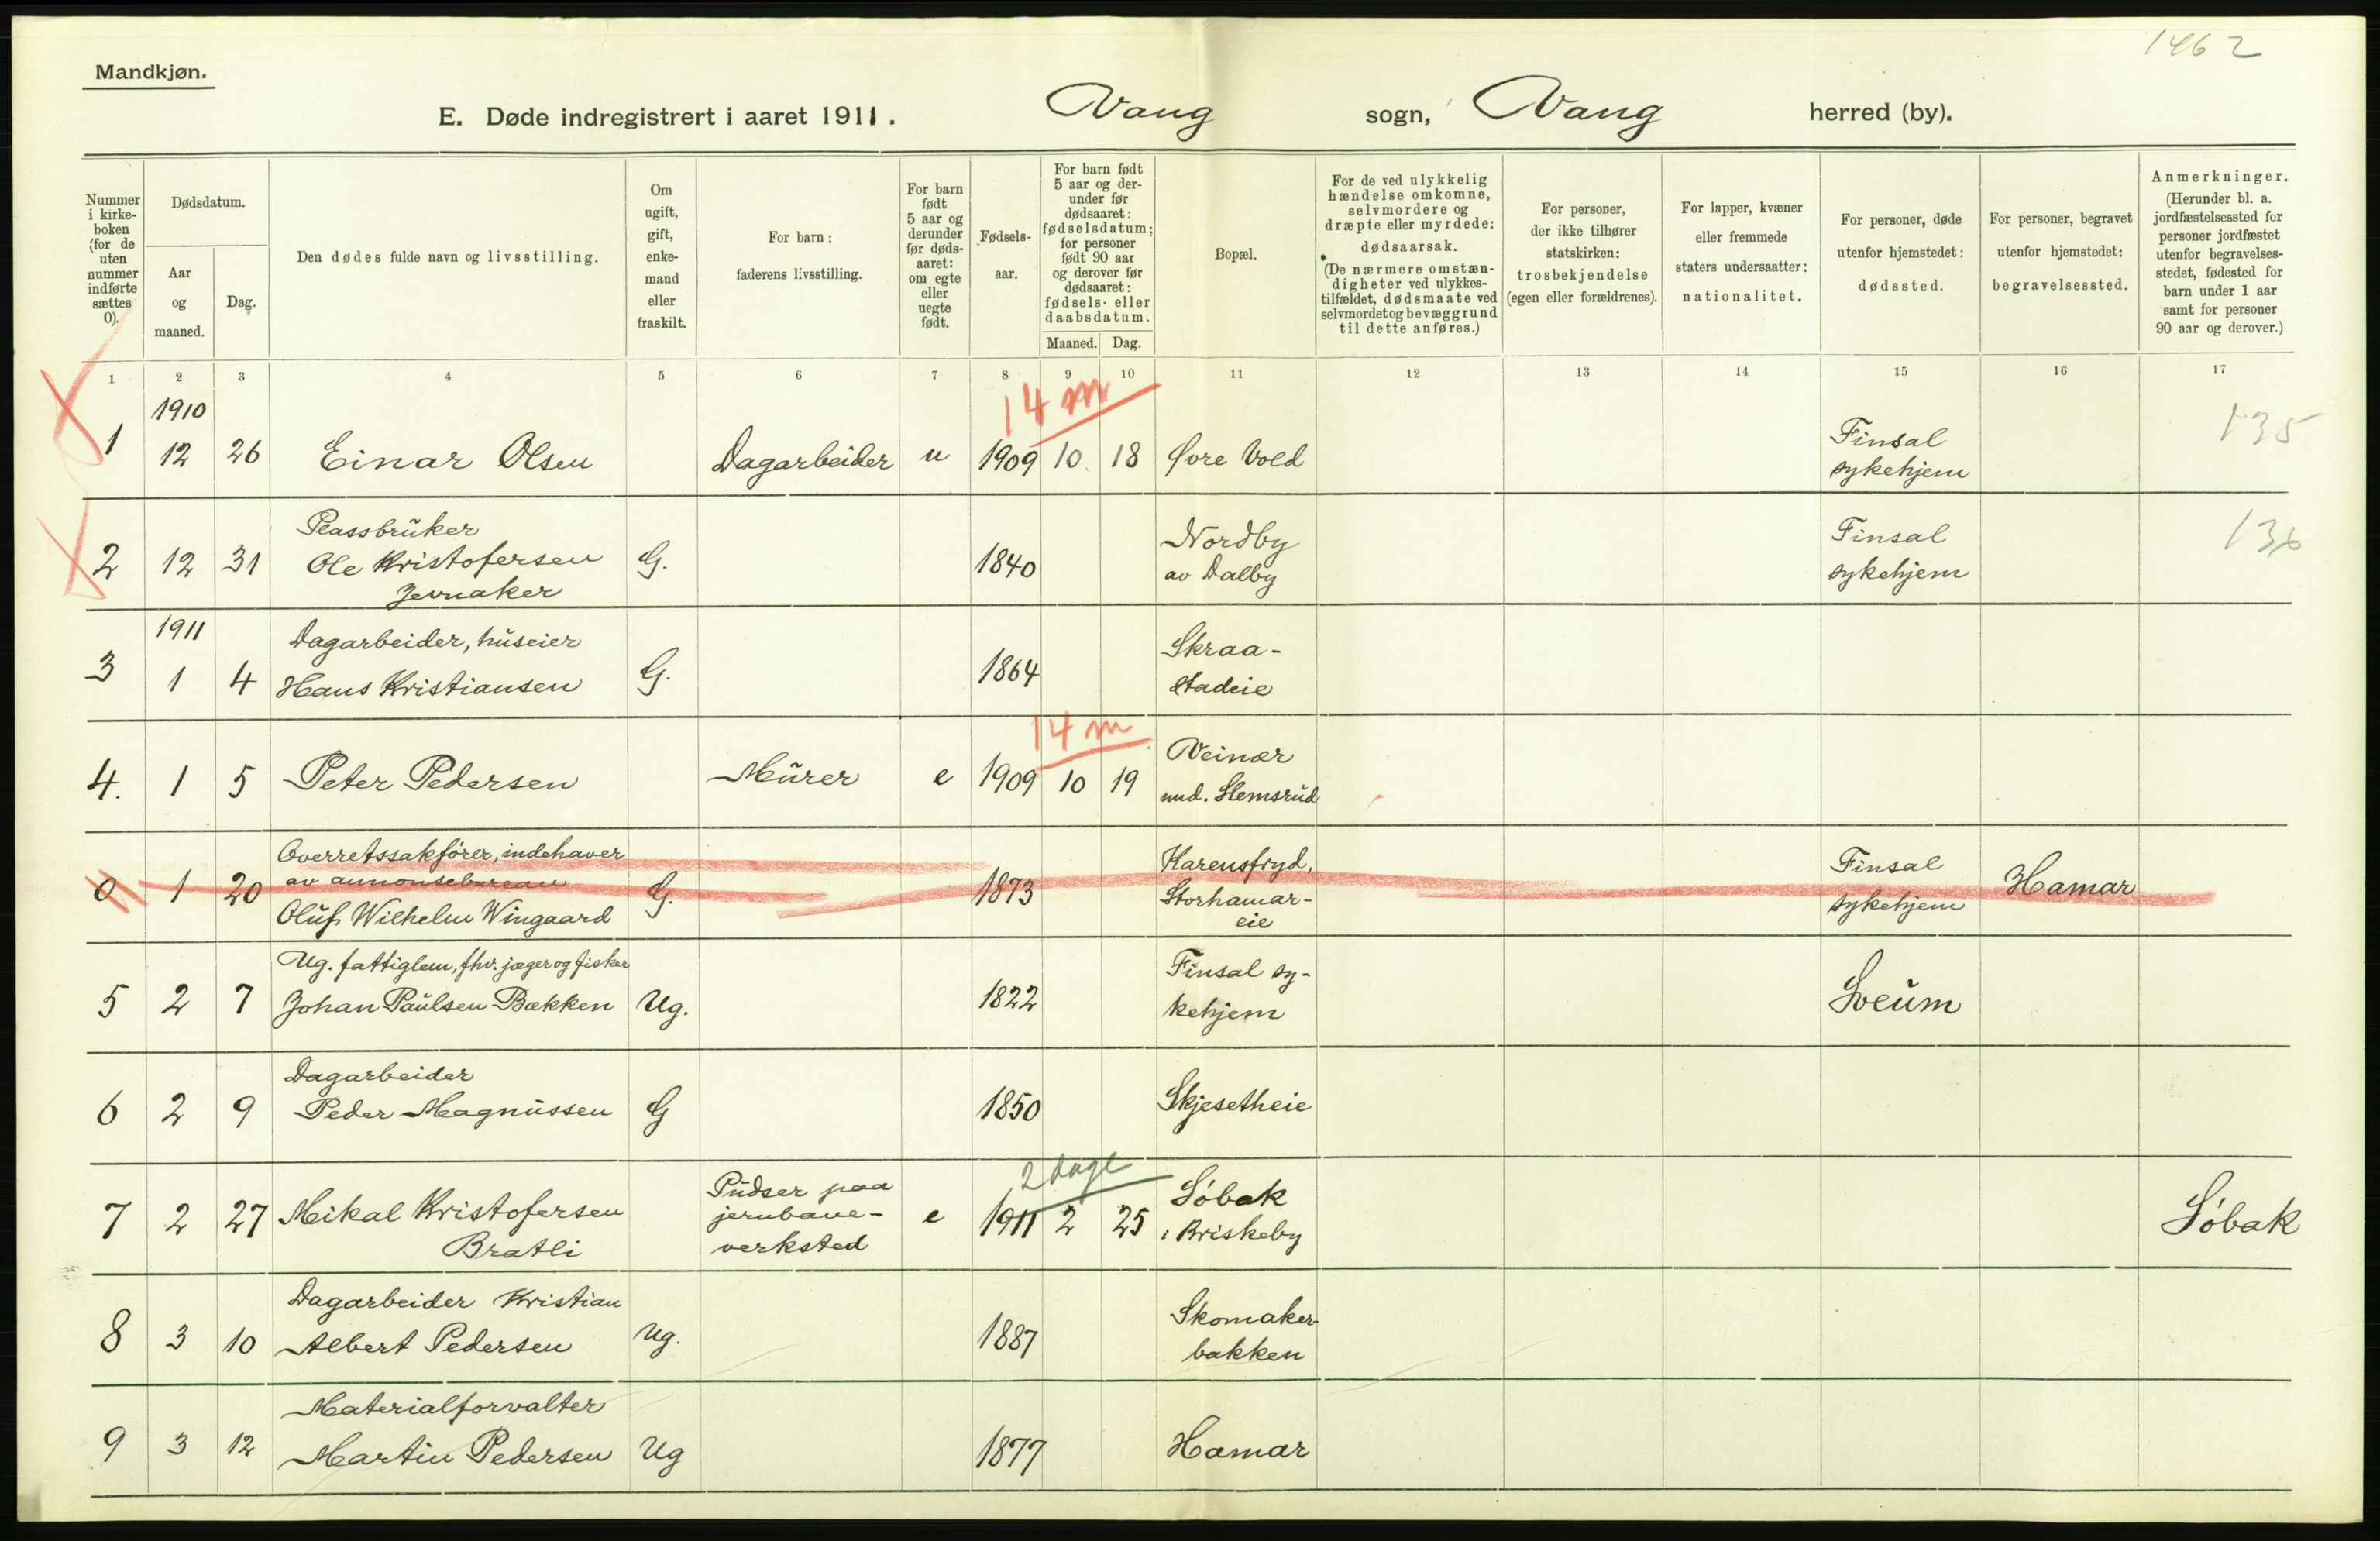 1462
Mandkjøn.
E. Døde indregistrert i aaret 1911. Vang sogn, Vang herred (by).
Nummer i kirkeboken (for de uten nummer indførte sættes 0).
Dødsdatum.
Aar og maaned.
Dag.
Den dødes fulde navn og livsstilling.
Om ugift, gift, enkemand eller fraskilt.
For barn: faderens livsstilling.
For barn født 5 aar og derunder før dødsaaret: om egte eller uegte født.
Fødselsaar.
For barn født 5 aar og derunder før dødsaaret: fødselsdatum; for personer født 90 aar og derover før dødsaaret: fødsels- eller daabsdatum.
Maaned. Dag.
Bopæl.
For de ved ulykkelig hændelse omkomne, selvmordere og dræpte eller myrdede: dødsaarsak. (De nærmere omstændigheter ved ulykkestilfældet, dødsmaate ved selvmordet og bevæggrund til dette anføres.)
For personer, der ikke tilhører statskirken: trosbekjendelse (egen eller forældrenes).
For lapper, kvæner eller fremmede staters undersaatter: nationalitet.
For personer, døde utenfor hjemstedet: dødssted.
For personer, begravet utenfor hjemstedet: begravelsessted.
Anmerkninger. (Herunder bl. a. jordfæstelsessted for personer jordfæstet utenfor begravelsesstedet, fødested for barn under 1 aar samt for personer 90 aar og derover.)
1 2 3 4 5 6 7 8 9 10 11 12 13 14 15 16 17
1910 14 m
1 12 26 Einar Olsen Dagarbeider u 1909 10 18 Øvre Vold Finsal sykehjem 135
2 12 31 Plassbruker Ole Kristofersen Jevnaker G. 1840 Nordby av Dalby Finsal sykehjem 136
1911
3 1 4 Dagarbeider, huseier Hans Kristiansen G. 1864 Skraastadeie
14 m
4. 1 5 Peter Pedersen Murer e 1909 10 19 Veinær und. Slemsrud
0 1 20 Overretssakfører, indehaver av annonsebureau Oluf Wilhelm Wingaard G. 1873 Karensfryd, Storhamareie Finsal sykehjem Hamar
5 2 7 Ug. fattiglem, fhv. jæger og fisker Johan Paulsen Bækken Ug. 1822 Finsal sykehjem Sveum
6 2 9 Dagarbeider Peder Magnussen G 1850 Skjesetheie
2 dage
7 2 27 Mikal Kristofersen Bratli Pudser paa jernbaneverksted e 1911 2 25 Sóbak i Briskeby Sóbak
8 3 10 Dagarbeider Kristian Albert Pedersen Ug. 1887 Skomakerbakken
9 3 12 Materialforvalter Martin Pedersen Ug 1877 Hamar